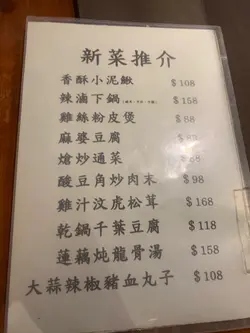 新菜推介
香酥小泥鰍 $108
辣滷下鍋 $158
雞絲粉皮煲 $88
麻婆豆腐
熗炒通菜
酸豆角炒肉末 $98
雞汁汶虎松茸 $168
乾鍋千葉豆腐 $118
蓮藕炖龍骨湯 $158
大蒜辣椒豬血丸子 $108